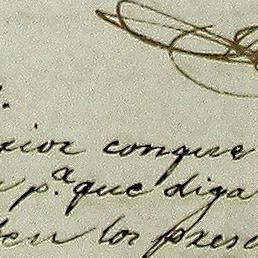 xior conque
pª que diga
ten los pres